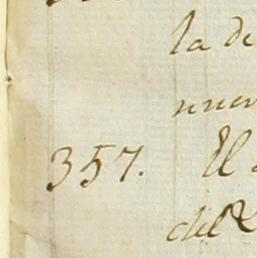 la de
nuev
357. El
del